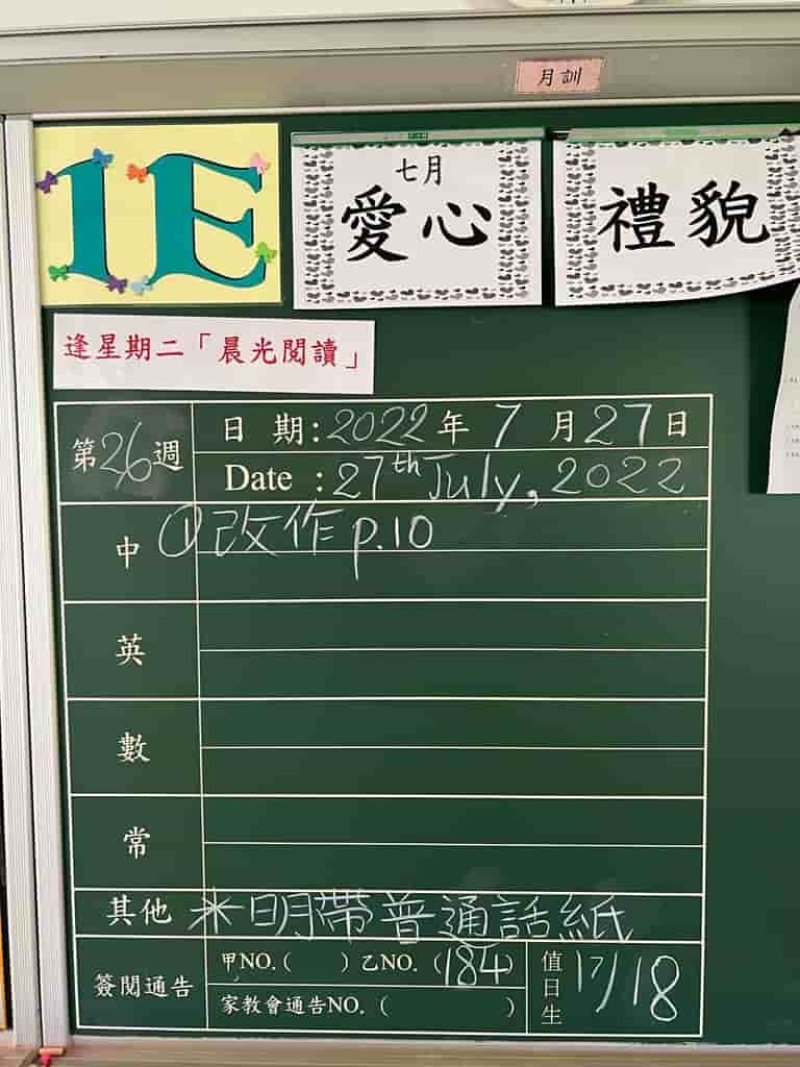 月訓
1E
七月
愛心
禮貌
逢星期二「晨光閱讀」
第26週
日 期:2022年 7 月27日
Date :27th July, 2022
中 ① 改作 p.10
英
數
常
其他 ※明帶普通話紙
簽閱通告 甲NO.( ) 乙NO.(184)
家教會通告NO.( )
值日生 17/18